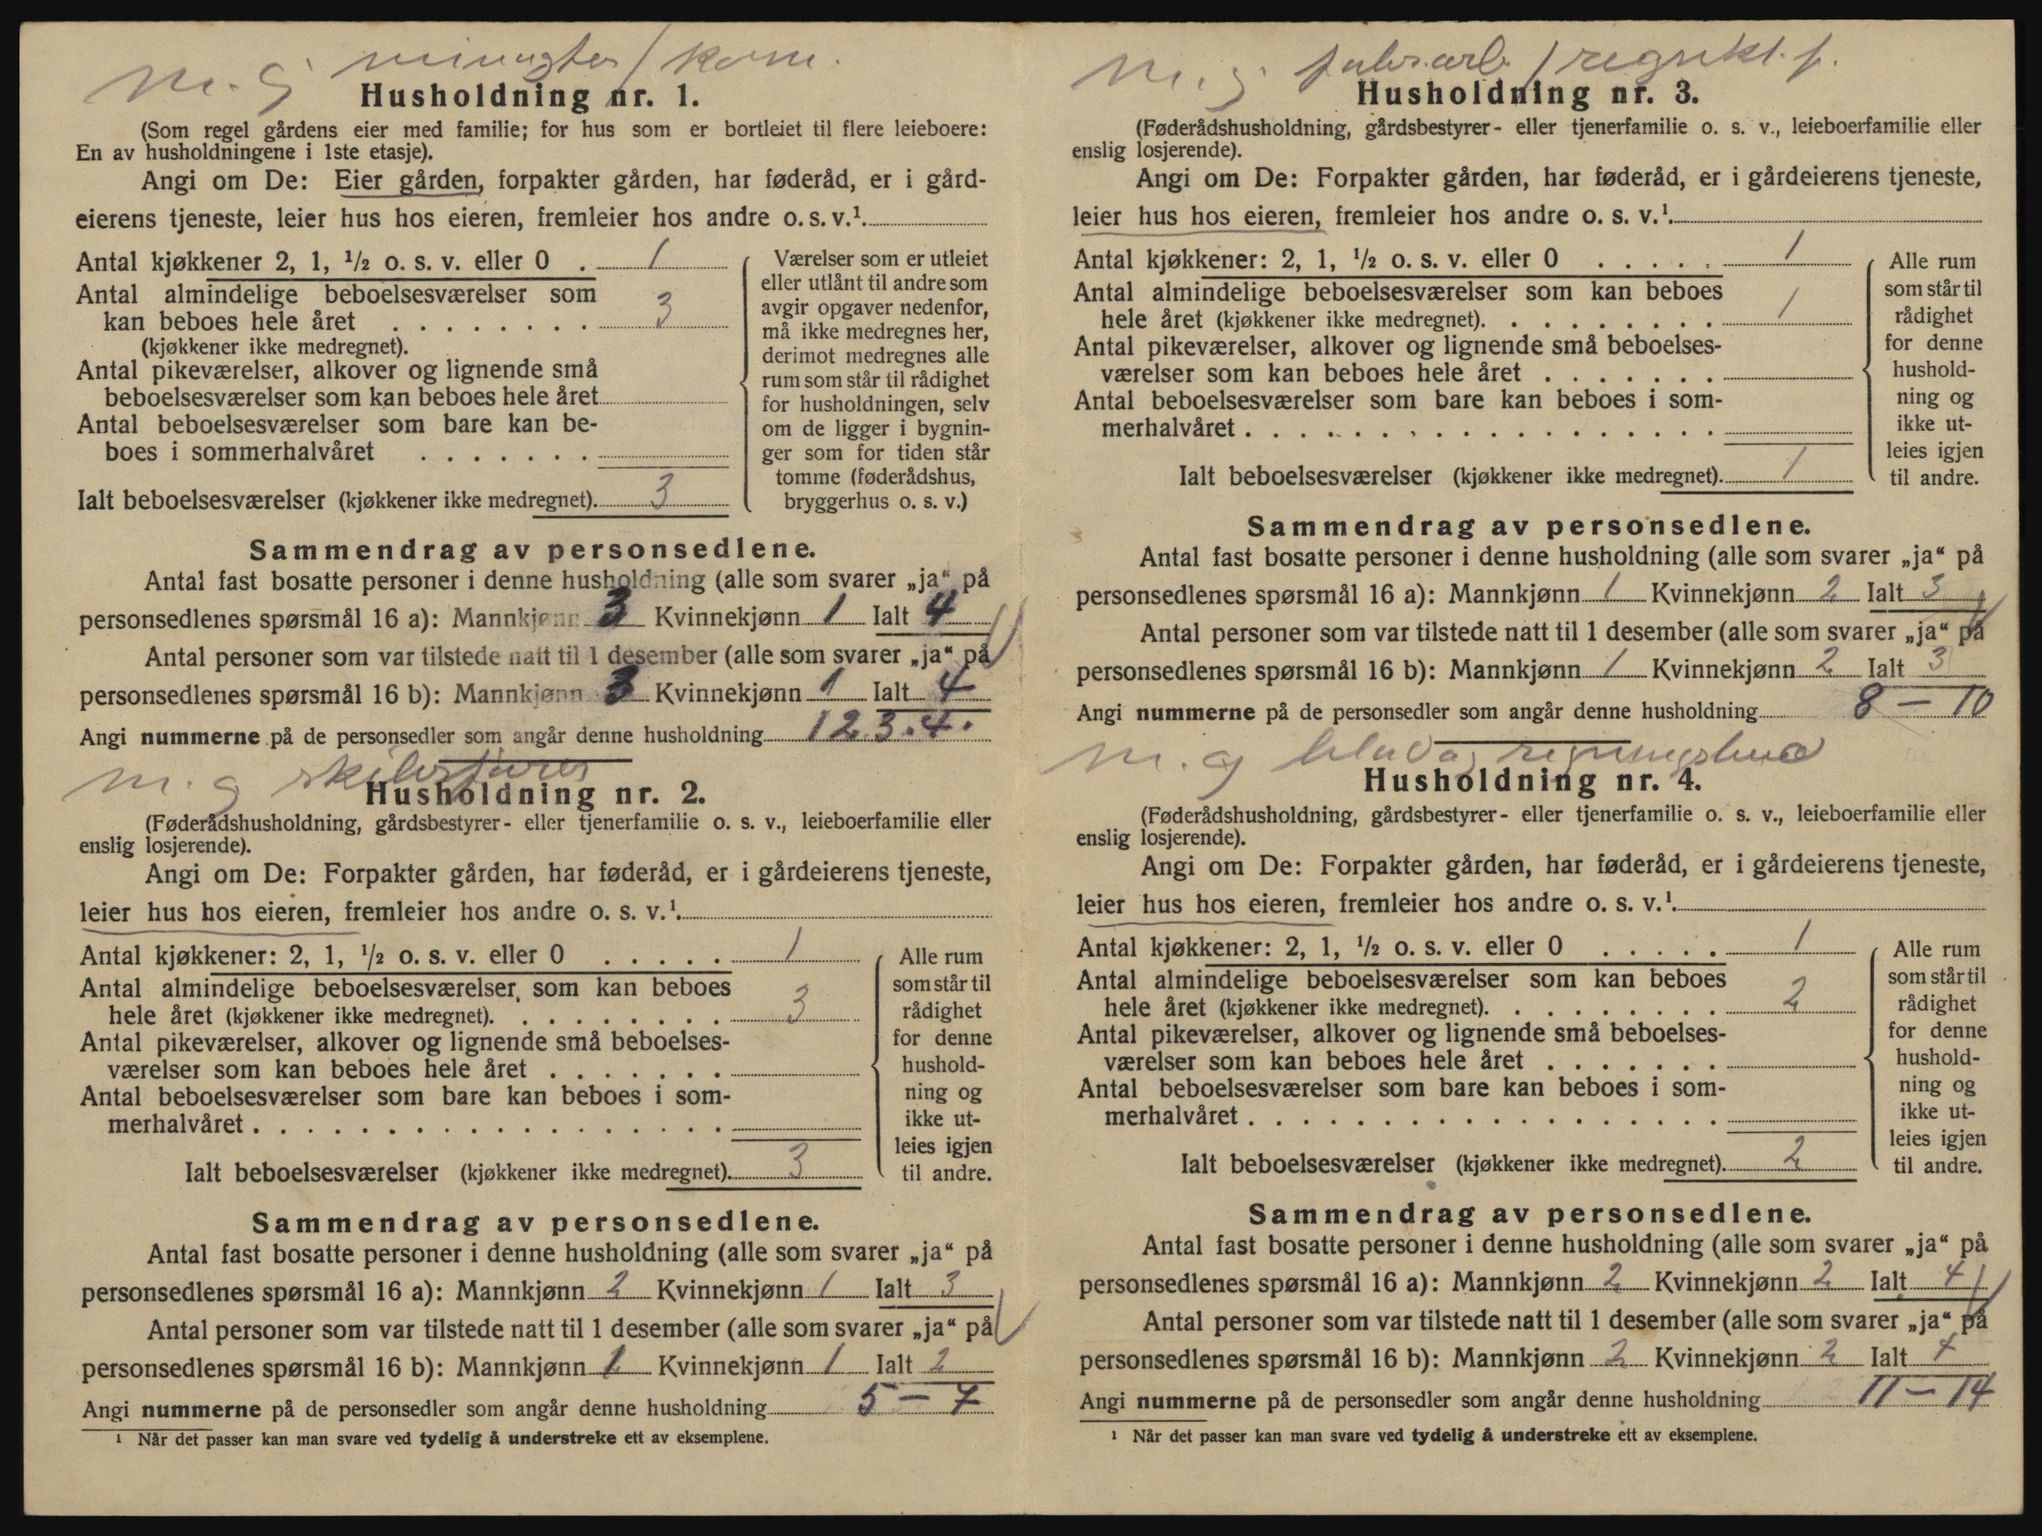 m. g
Husholdning nr. 1.
(Som regel gårdens eier med familie; for hus som er bortleiet til flere leieboere:
En av husholdningene i 1ste etasje).
Angi om De: Eier gården, forpakter gården, har føderåd, er i gård-
eierens tjeneste, leier hus hos eieren, fremleier hos andre o. s. v.¹
Antal kjøkkener 2, 1, ½ o. s. v. eller 0 . 1
Antal almindelige beboelsesværelser som
kan beboes hele året . . . . . . . . 3
(kjøkkener ikke medregnet).
Antal pikeværelser, alkover og lignende små
beboelsesværelser som kan beboes hele året
Antal beboelsesværelser som bare kan be-
boes i sommerhalvåret . . . . . . .
Ialt beboelsesværelser (kjøkkener ikke medregnet). 3
Værelser som er utleiet
eller utlånt til andre som
avgir opgaver nedenfor,
må ikke medregnes her,
derimot medregnes alle
rum som står til rådighet
for husholdningen, selv
om de ligger i bygnin-
ger som for tiden står
tomme (føderådshus,
bryggerhus o. s. v.)
Sammendrag av personsedlene.
Antal fast bosatte personer i denne husholdning (alle som svarer „ja“ på
personsedlenes spørsmål 16 a): Mannkjønn 3 Kvinnekjønn 1 Ialt 4
Antal personer som var tilstede natt til 1 desember (alle som svarer „ja“ på
personsedlenes spørsmål 16 b): Mannkjønn 3 Kvinnekjønn 1 Ialt 4
Angi nummerne på de personsedler som angår denne husholdning 1 2 3 . 4 .
m. g
Husholdning nr. 2.
(Føderådshusholdning, gårdsbestyrer- eller tjenerfamilie o. s. v., leieboerfamilie eller
enslig losjerende).
Angi om De: Forpakter gården, har føderåd, er i gårdeierens tjeneste,
leier hus hos eieren, fremleier hos andre o. s. v.¹
Antal kjøkkener: 2, 1, ½ o. s. v. eller 0 . . . . . 1
Antal almindelige beboelsesværelser som kan beboes
hele året (kjøkkener ikke medregnet). . . . . . . . . 3
Antal pikeværelser, alkover og lignende små beboelses-
værelser som kan beboes hele året . . . . . . .
Antal beboelsesværelser som bare kan beboes i som-
merhalvåret . . . . . . . . . . . . . . . . . .
Ialt beboelsesværelser (kjøkkener ikke medregnet). 3
Alle rum
som står til
rådighet
for denne
hushold-
ning og
ikke ut-
leies igjen
til andre.
Sammendrag av personsedlene.
Antal fast bosatte personer i denne husholdning (alle som svarer „ja“ på
personsedlenes spørsmål 16 a): Mannkjønn 2 Kvinnekjønn 1 Ialt 3
Antal personer som var tilstede natt til 1 desember (alle som svarer „ja“ på
personsedlenes spørsmål 16 b): Mannkjønn 1 Kvinnekjønn 1 Ialt 2
Angi nummerne på de personsedler som angår denne husholdning 5 – 7
¹ Når det passer kan man svare ved tydelig å understreke ett av eksemplene.
m. g.
Husholdning nr. 3.
(Føderådshusholdning, gårdsbestyrer- eller tjenerfamilie o. s. v., leieboerfamilie eller
enslig losjerende).
Angi om De: Forpakter gården, har føderåd, er i gårdeierens tjeneste,
leier hus hos eieren, fremleier hos andre o. s. v.¹
Antal kjøkkener: 2, 1, ½ o. s. v. eller 0 . . . . . 1
Antal almindelige beboelsesværelser som kan beboes
hele året (kjøkkener ikke medregnet). . . . . . . . . 1
Antal pikeværelser, alkover og lignende små beboelses-
værelser som kan beboes hele året . . . . . . .
Antal beboelsesværelser som bare kan beboes i som-
merhalvåret . . . . . . . . . . . . . . . . . .
Ialt beboelsesværelser (kjøkkener ikke medregnet). 1
Alle rum
som står til
rådighet
for denne
hushold-
ning og
ikke ut-
leies igjen
til andre.
Sammendrag av personsedlene.
Antal fast bosatte personer i denne husholdning (alle som svarer „ja“ på
personsedlenes spørsmål 16 a): Mannkjønn 1 Kvinnekjønn 2 Ialt 3
Antal personer som var tilstede natt til 1 desember (alle som svarer „ja“ på
personsedlenes spørsmål 16 b): Mannkjønn 1 Kvinnekjønn 2 Ialt 3
Angi nummerne på de personsedler som angår denne husholdning 8 – 10
m. g
Husholdning nr. 4.
(Føderådshusholdning, gårdsbestyrer- eller tjenerfamilie o. s. v., leieboerfamilie eller
enslig losjerende).
Angi om De: Forpakter gården, har føderåd, er i gårdeierens tjeneste,
leier hus hos eieren, fremleier hos andre o. s. v.¹
Antal kjøkkener: 2, 1, ½ o. s. v. eller 0 . . . . . 1
Antal almindelige beboelsesværelser som kan beboes
hele året (kjøkkener ikke medregnet). . . . . . . . . 2
Antal pikeværelser, alkover og lignende små beboelses-
værelser som kan beboes hele året . . . . . . .
Antal beboelsesværelser som bare kan beboes i som-
merhalvåret . . . . . . . . . . . . . . . . . .
Ialt beboelsesværelser (kjøkkener ikke medregnet). 2
Alle rum
som står til
rådighet
for denne
hushold-
ning og
ikke ut-
leies igjen
til andre.
Sammendrag av personsedlene.
Antal fast bosatte personer i denne husholdning (alle som svarer „ja“ på
personsedlenes spørsmål 16 a): Mannkjønn 2 Kvinnekjønn 2 Ialt 4
Antal personer som var tilstede natt til 1 desember (alle som svarer „ja“ på
personsedlenes spørsmål 16 b): Mannkjønn 2 Kvinnekjønn 2 Ialt 4
Angi nummerne på de personsedler som angår denne husholdning 11 – 14
¹ Når det passer kan man svare ved tydelig å understreke ett av eksemplene.